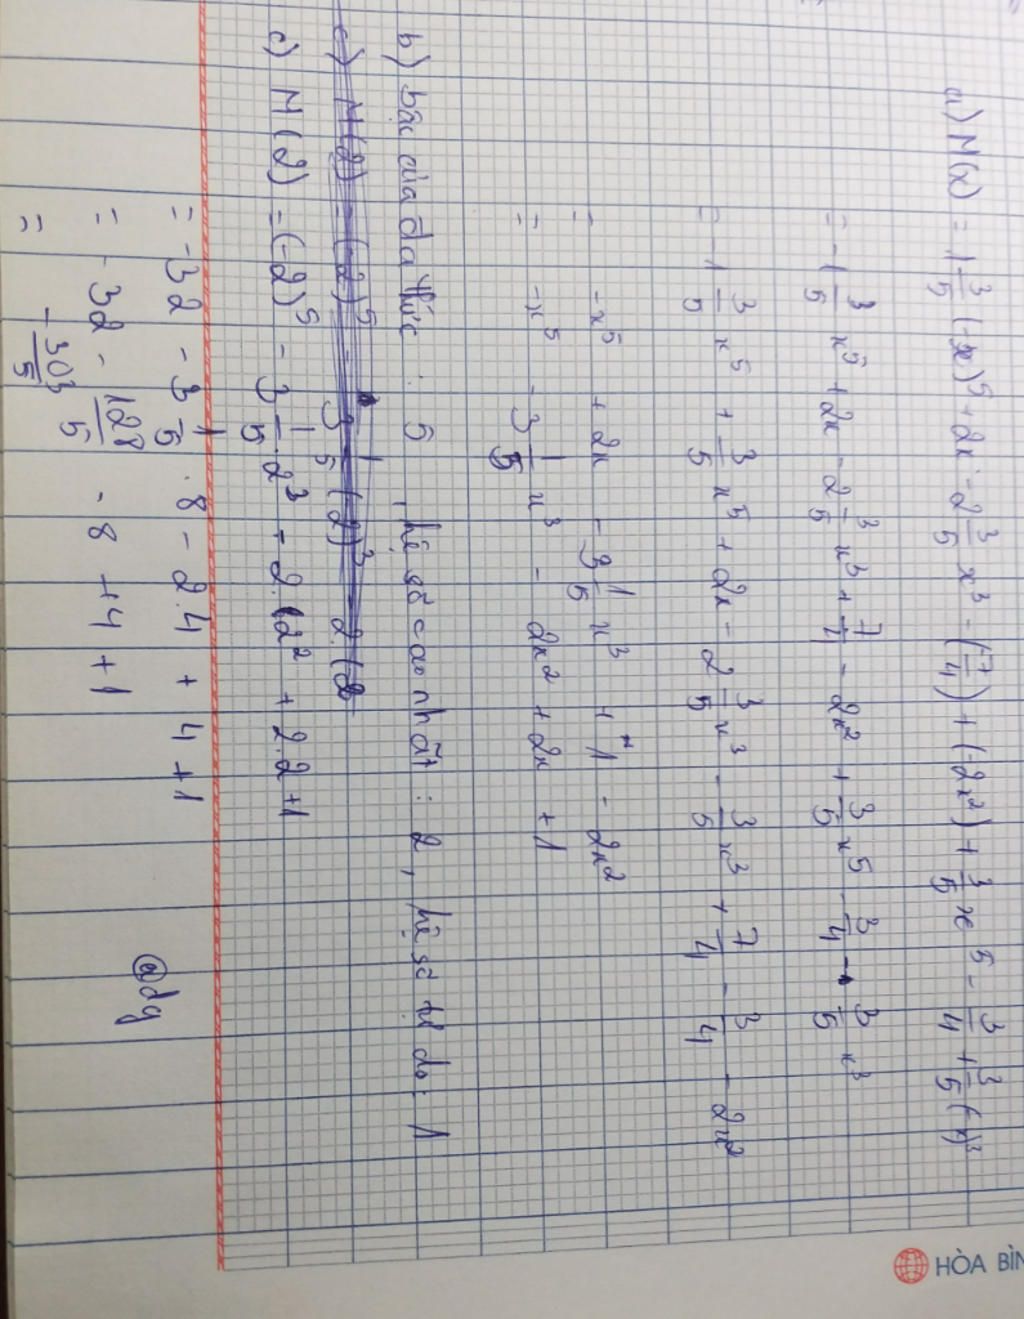 a) M(x) = 1 3/5 (-x)^5 + 2x - 2 3/5 x^3 - (-7/4) + (-2x^2) + 3/5 x^5 - 3/4 + 3/5 (-x)^3
= -1 3/5 x^5 + 2x - 2 3/5 x^3 + 7/4 - 2x^2 + 3/5 x^5 - 3/4 - 3/5 x^3
= -1 3/5 x^5 + 3/5 x^5 + 2x - 2 3/5 x^3 - 3/5 x^3 + 7/4 - 3/4 - 2x^2
= -x^5 + 2x - 3 1/5 x^3 + 1 - 2x^2
= -x^5 - 3 1/5 x^3 - 2x^2 + 2x + 1
b) bậc của đa thức : 5 , hệ số cao nhất : 2 , hệ số tự do : 1
c) M(2) = (-2)^5 - 3 1/5 . 2^3 - 2.(2^2 + 2.2 + 1
= -32 - 3 1/5 . 8 - 2.4 + 4 + 1
= -32 - 128/5 - 8 + 4 + 1
= -303/5
@dg
HÒA BÌN